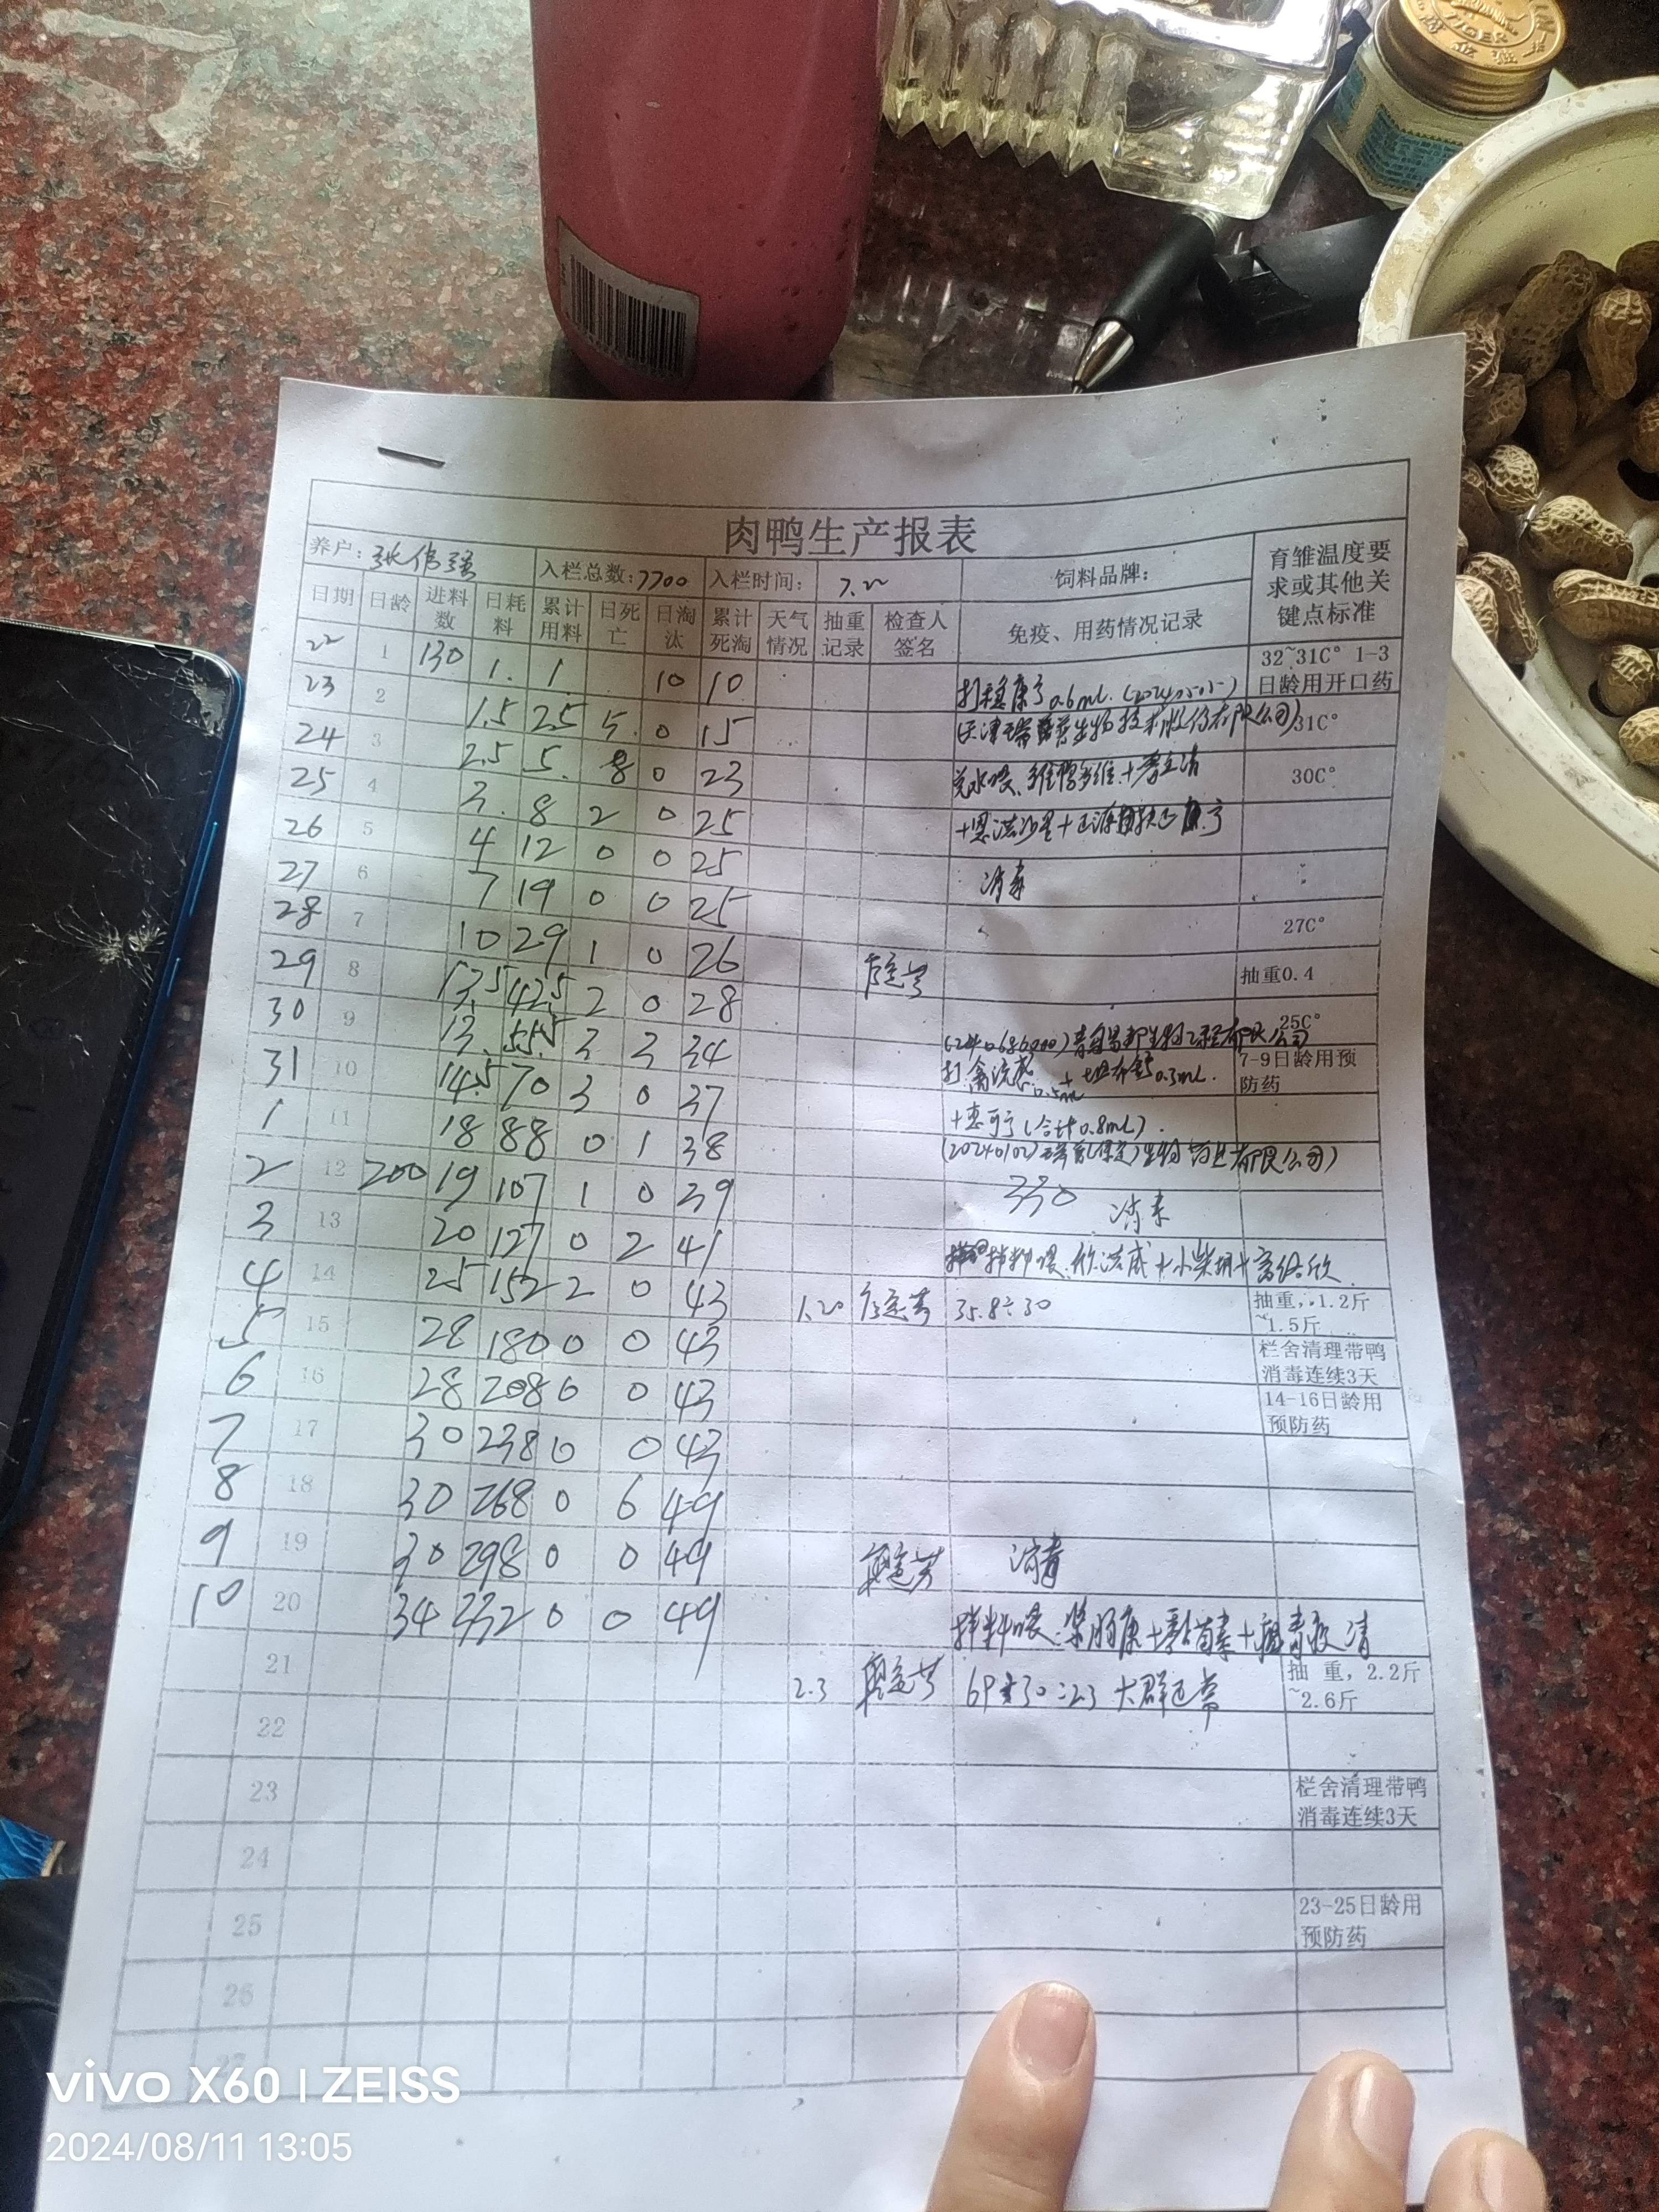 TIGER
肉鸭生产报表
养户: 张伟强 入栏总数: 7700 入栏时间: 7.22 饲料品牌: 育雏温度要求或其他关键点标准
日期 日龄 进料数 日耗料 累计用料 日死亡 日淘汰 累计死淘 天气情况 抽重记录 检查人签名 免疫、用药情况记录
22 1 130 1. 1. 10 10 32~31C° 1-3日龄用开口药
23 2 1.5 2.5 5. 0 15 0.6mL. 31C°
24 3 2.5 5. 8 0 23 30C°
25 4 3. 8 2 0 25
26 5 4 12 0 0 25 消毒
27 6 7 19 0 0 25 27C°
28 7 10 29 1 0 26 抽重0.4
29 8 13.5 42.5 2 0 28 25C°
30 9 13. 55.5 3 3 34 打禽流感 0.5ml + 0.3mL. 7-9日龄用预防药
31 10 14.5 70 3 0 37 (合计0.8mL)
1 11 18 88 0 1 38 (20240102) 生物药业有限公司)
2 12 200 19 107 1 0 39 330 消毒
3 13 20 127 0 2 41 拌料喂. +小柴胡+
4 14 25 152 2 0 43 1.20 35.8÷30 抽重,1.2斤~1.5斤
5 15 28 180 0 0 43 栏舍清理带鸭消毒连续3天
6 16 28 208 0 0 43 14-16日龄用预防药
7 17 30 238 0 0 43
8 18 30 268 0 6 49
9 19 30 298 0 0 49 消毒
10 20 34 332 0 0 49 拌料喂:
21 2.3 大群正常 抽重,2.2斤~2.6斤
22
23 栏舍清理带鸭消毒连续3天
24
25 23-25日龄用预防药
26
27
vivo X60 | ZEISS
2024/08/11 13:05